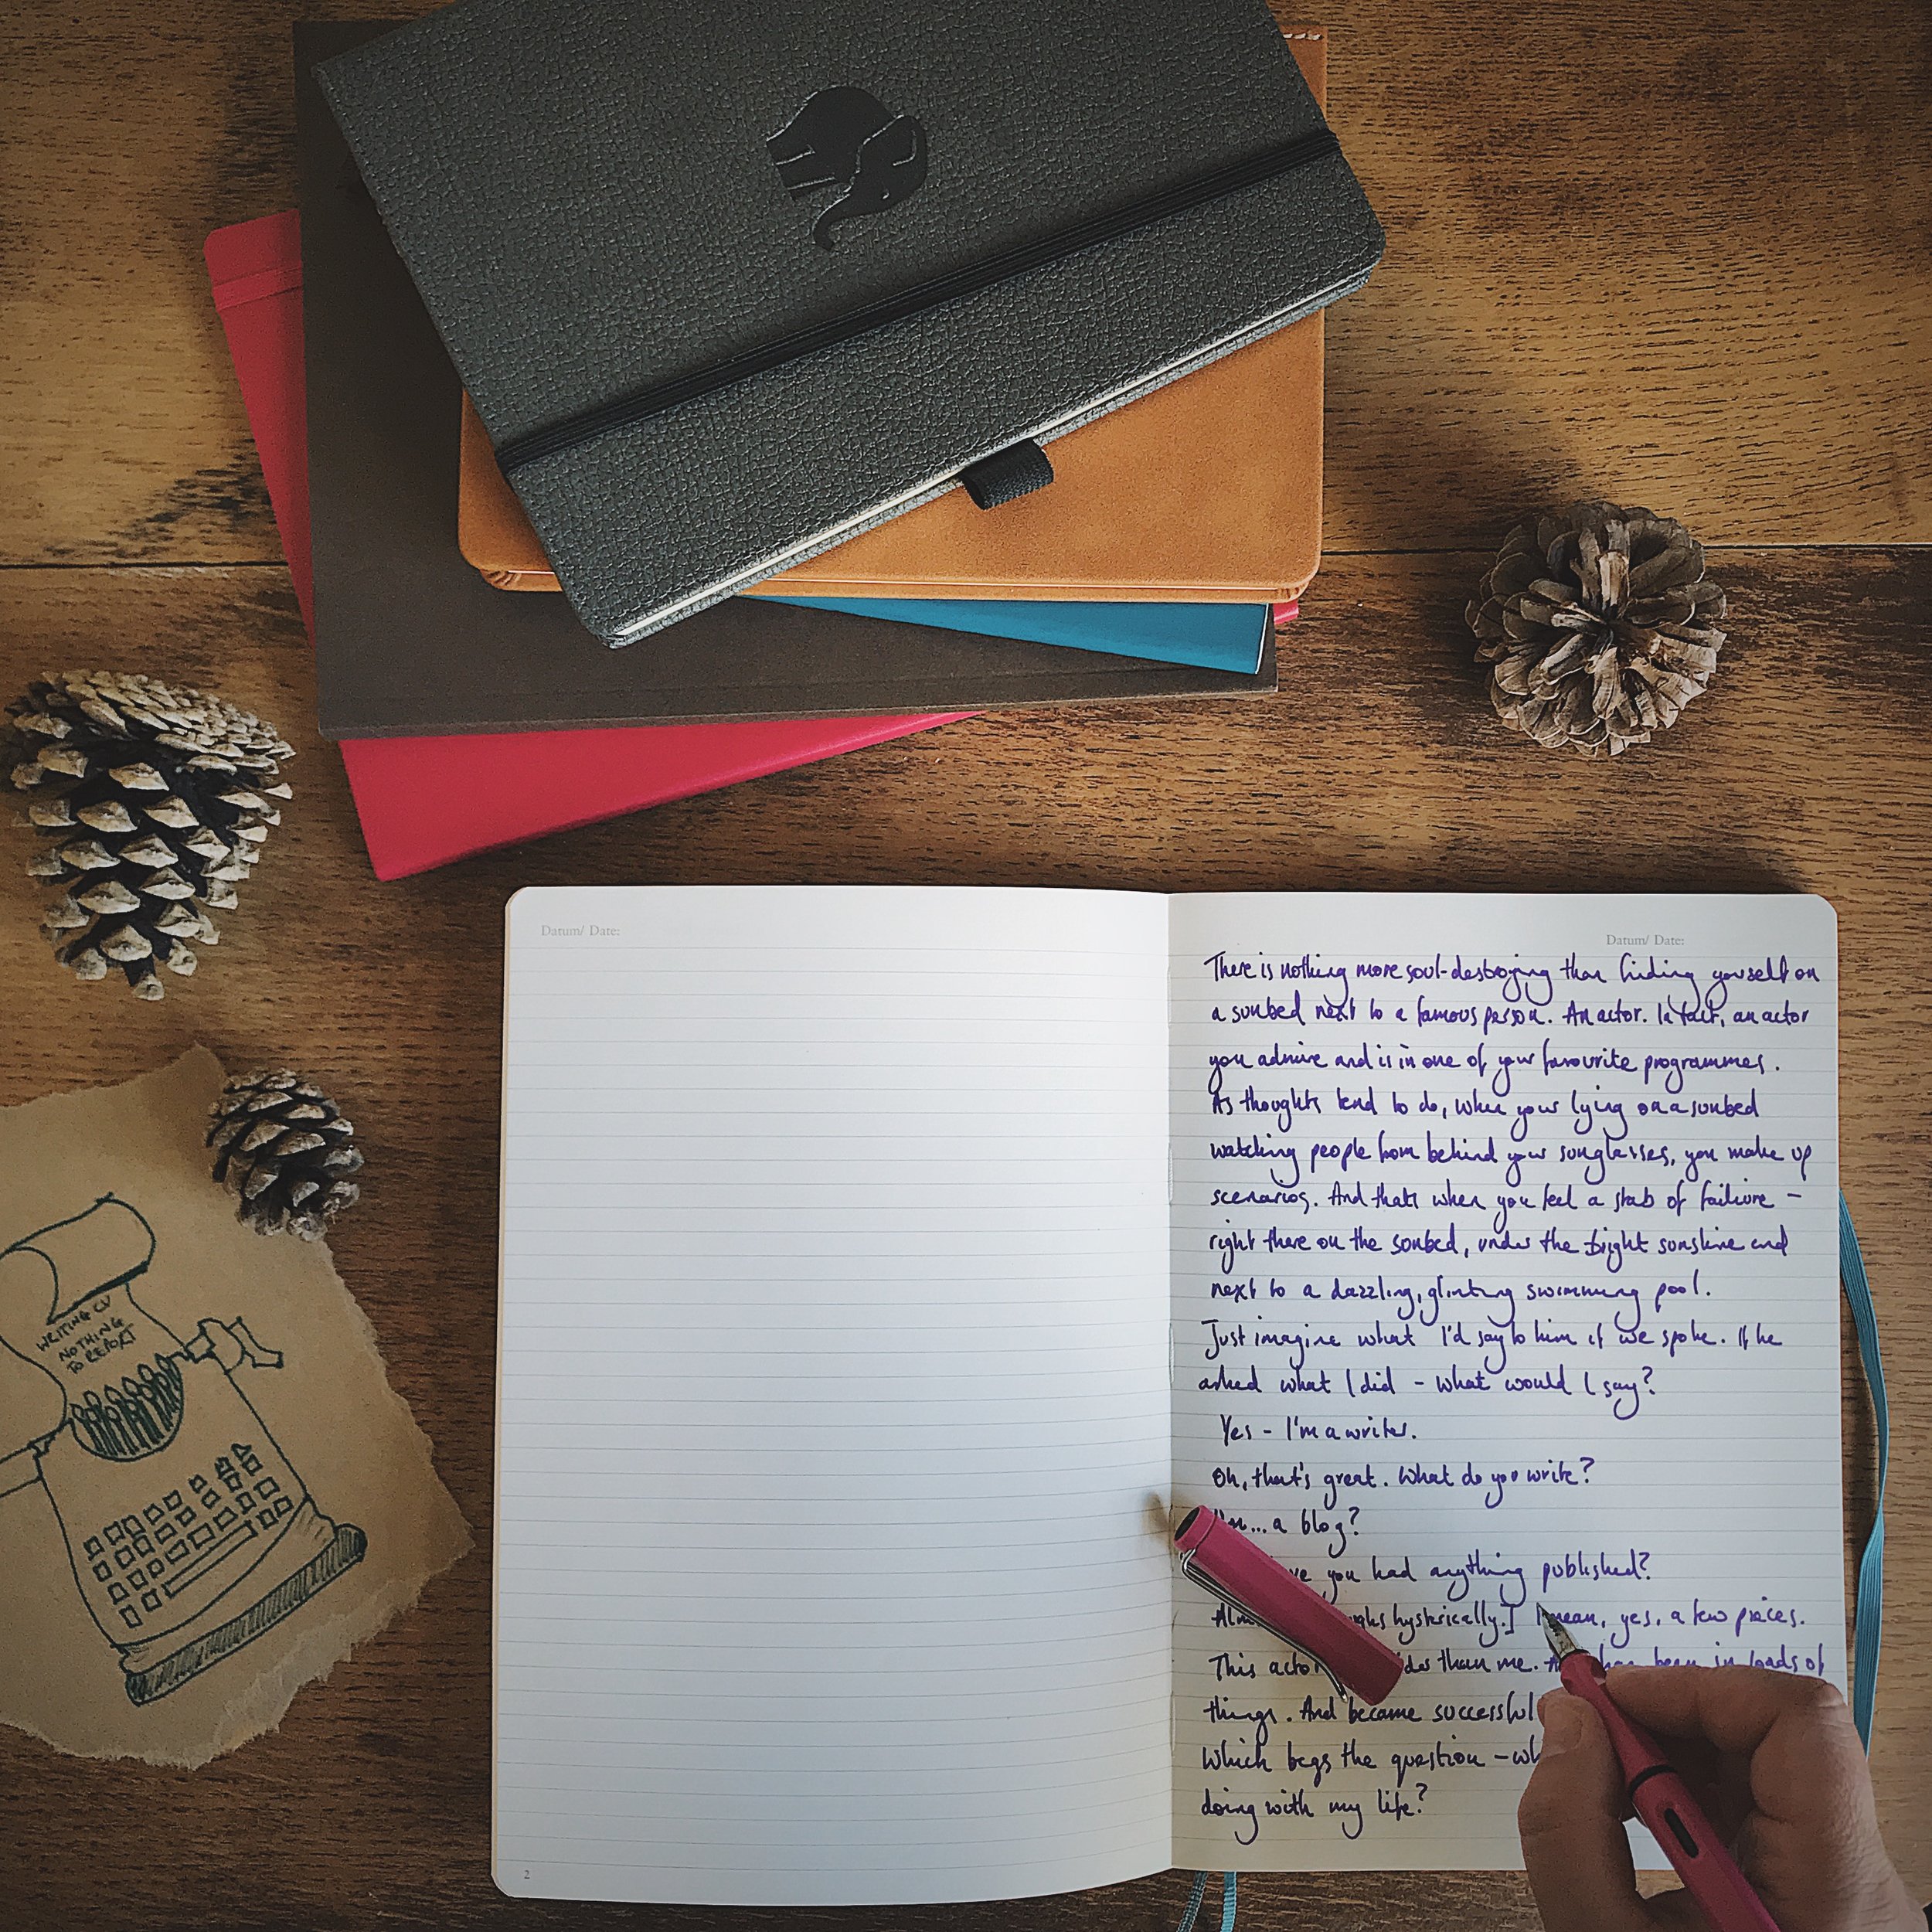 Datum/ Date:
Datum/ Date:
There is nothing more soul-destroying than finding yourself on
a sunbed next to a famous person. An actor. In fact, an actor
you admire and is in one of your favourite programmes.
As thoughts tend to do, when your lying on a sunbed
watching people from behind your sunglasses, you make up
scenarios. And thats when you feel a stab of failure -
right there on the sunbed, under the bright sunshine and
next to a dazzling, glinting swimming pool.
Just imagine what I'd say to him if we spoke. If he
asked what I did - what would I say?
Yes - I'm a writer.
Oh, that's great. What do you write?
... a blog?
you had anything published?
hysterically.] I mean, yes, a few pieces.
This actor than me. has been in loads of
things. And became successful
Which begs the question -
doing with my life?
2
WRITING CV
NOTHING
TO REPORT